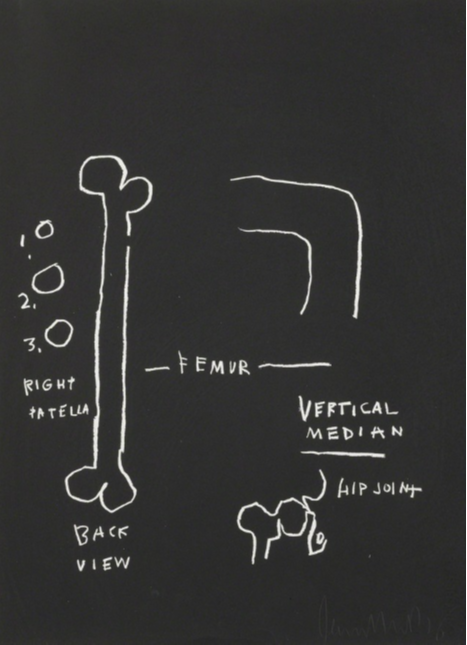 1.
2.
3.
RIGHT
PATELLA
BACK
VIEW
FEMUR
VERTICAL
MEDIAN
HIP JOINT